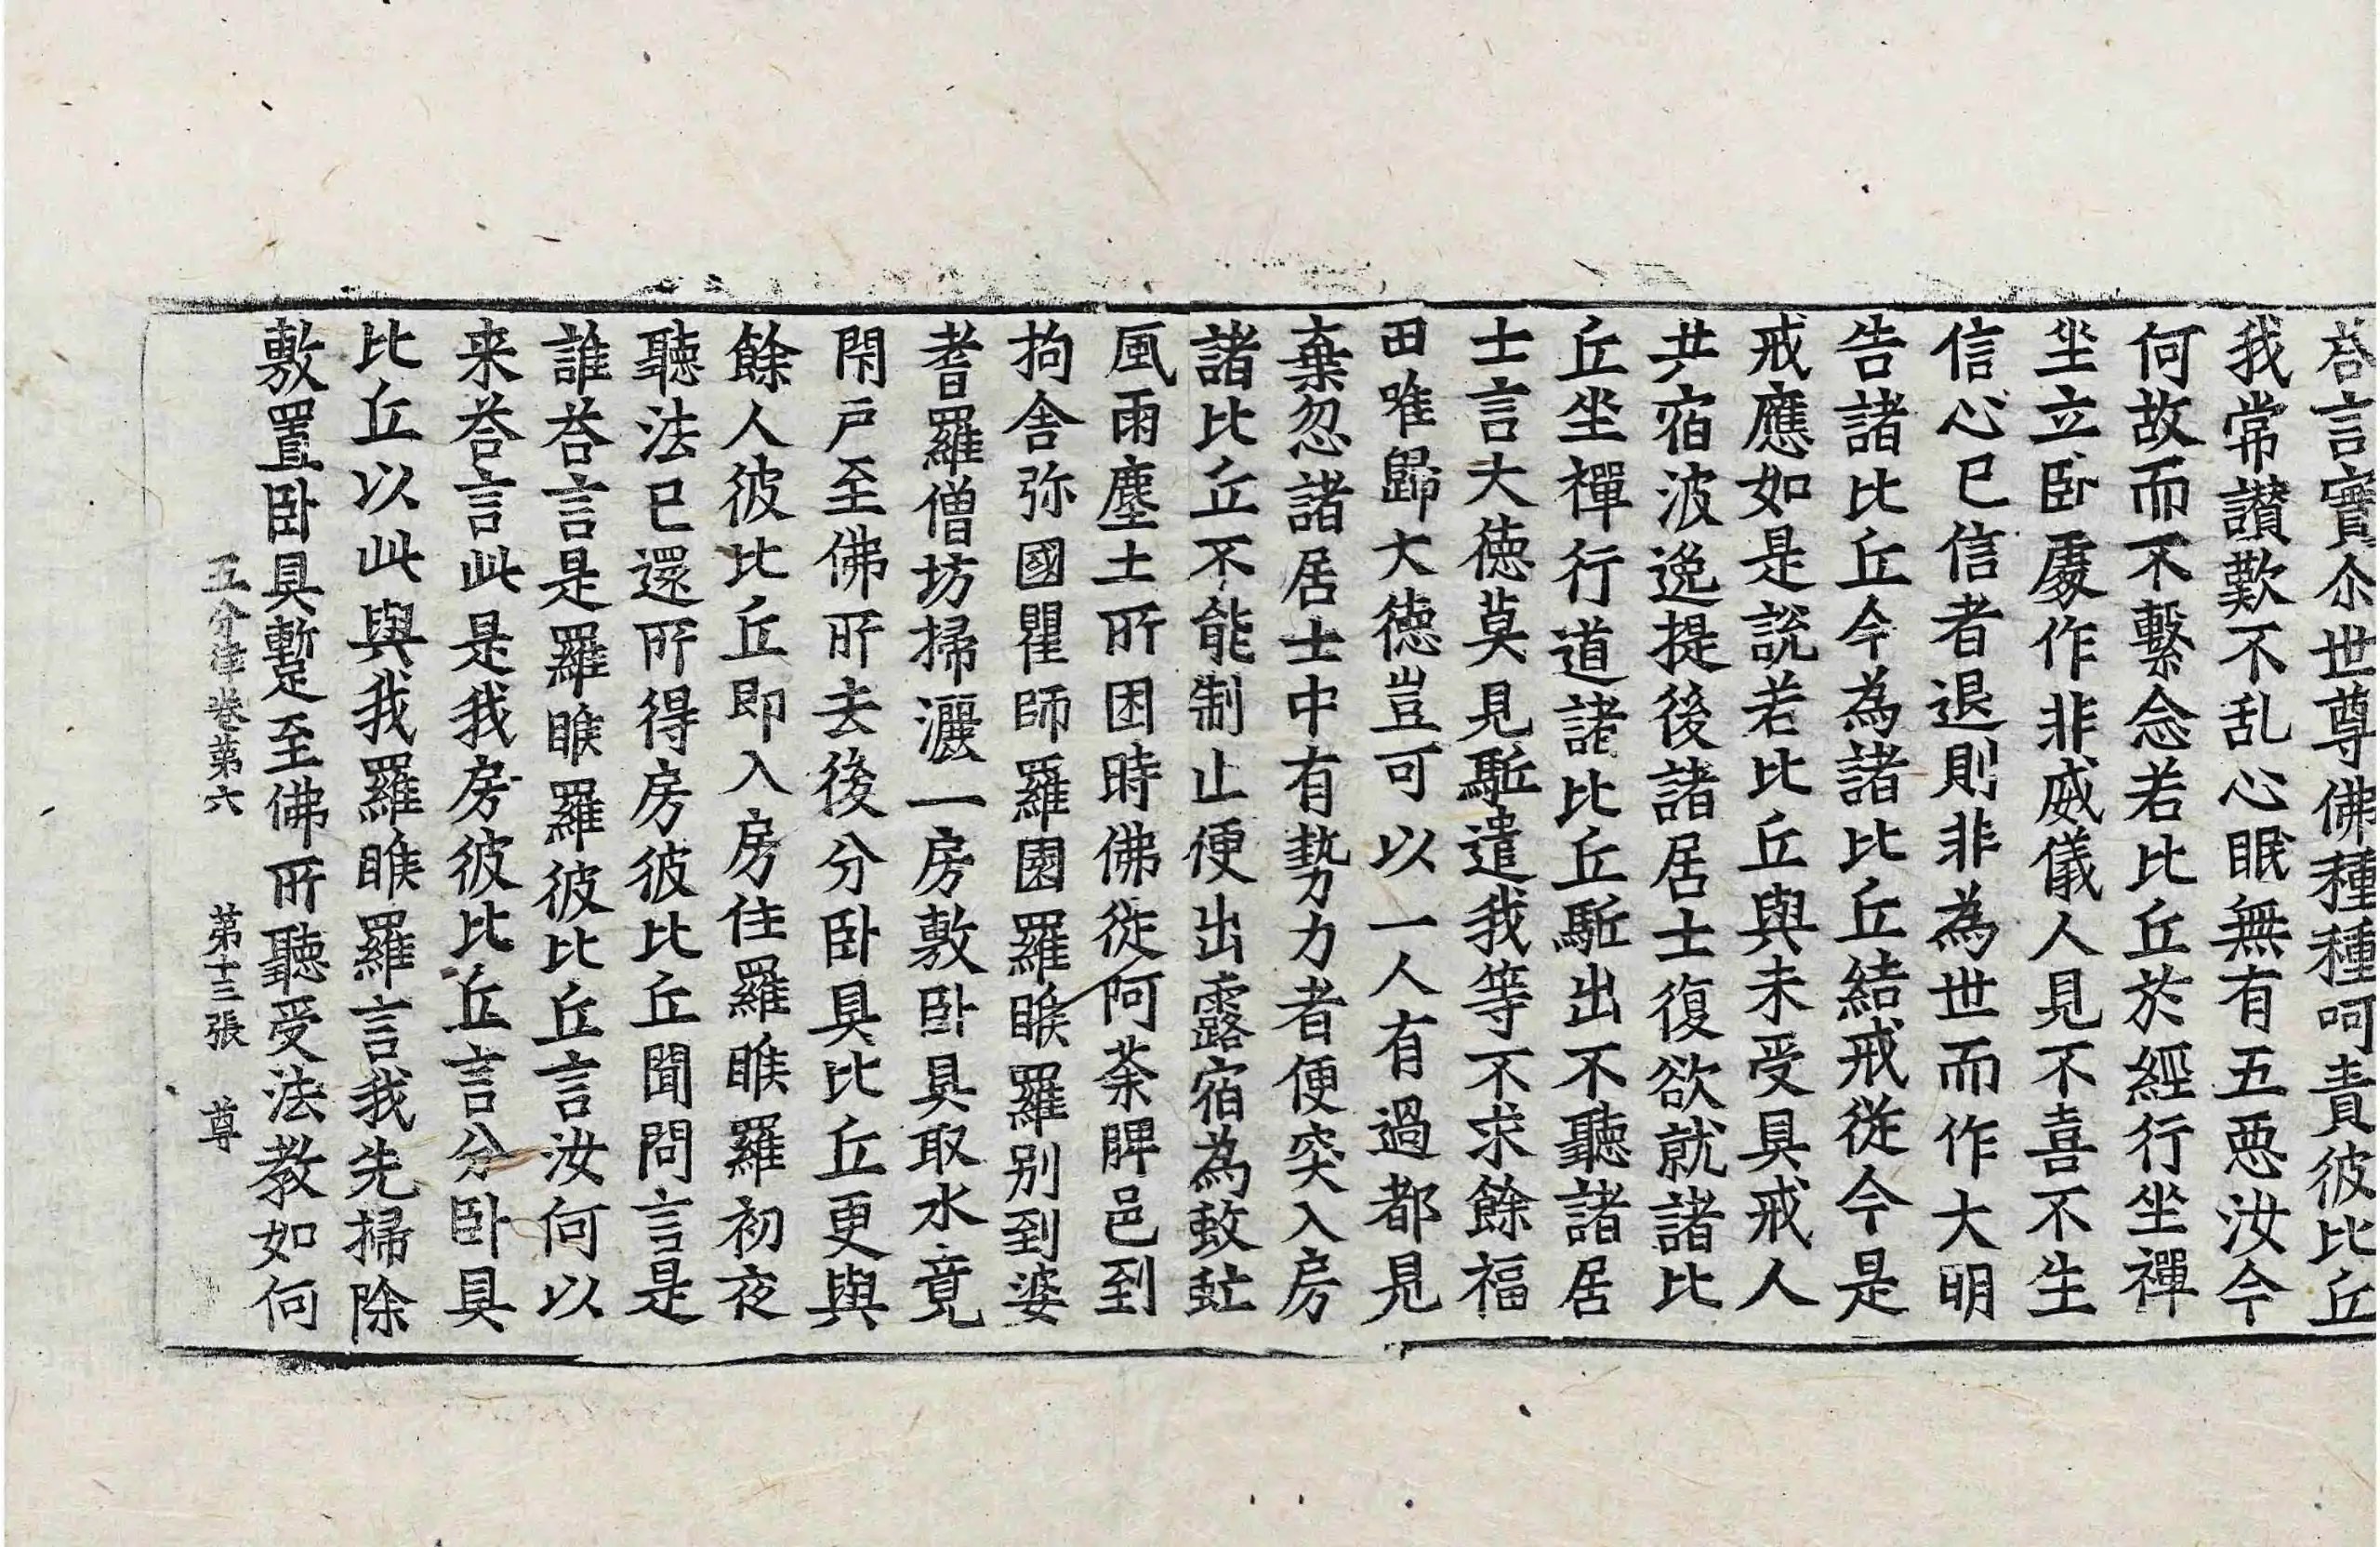 荅言實尒世尊佛種種呵責彼比丘
我常讃歎不乱心眠無有五惡汝今
何故而不繫念若比丘於經行坐禪
坐立卧處作非威儀人見不喜不生
信心已信者退則非為世而作大明
告諸比丘今為諸比丘結戒從今是
戒應如是說若比丘與未受具戒人
共宿波逸提後諸居士復欲就諸比
丘坐禪行道諸比丘駈出不聽諸居
士言大德莫見駈遣我等不求餘福
田唯歸大德豈可以一人有過都見
棄忽諸居士中有勢力者便突入房
諸比丘不能制止便出露宿為蚊虻
風雨塵土所困時佛從阿荼脾邑到
拘舍弥國瞿師羅園羅睺羅别到婆
耆羅僧坊掃灑一房敷卧具取水竟
閇戶至佛所去後分卧具比丘更與
餘人彼比丘即入房住羅睺羅初夜
聽法已還所得房彼比丘聞問言是
誰荅言是羅睺羅彼比丘言汝何以
来荅言此是我房彼比丘言分卧具
比丘以此與我羅睺羅言我先掃除
敷置卧具蹔至佛所聽受法教如何
五分律卷第六 第十三張 尊